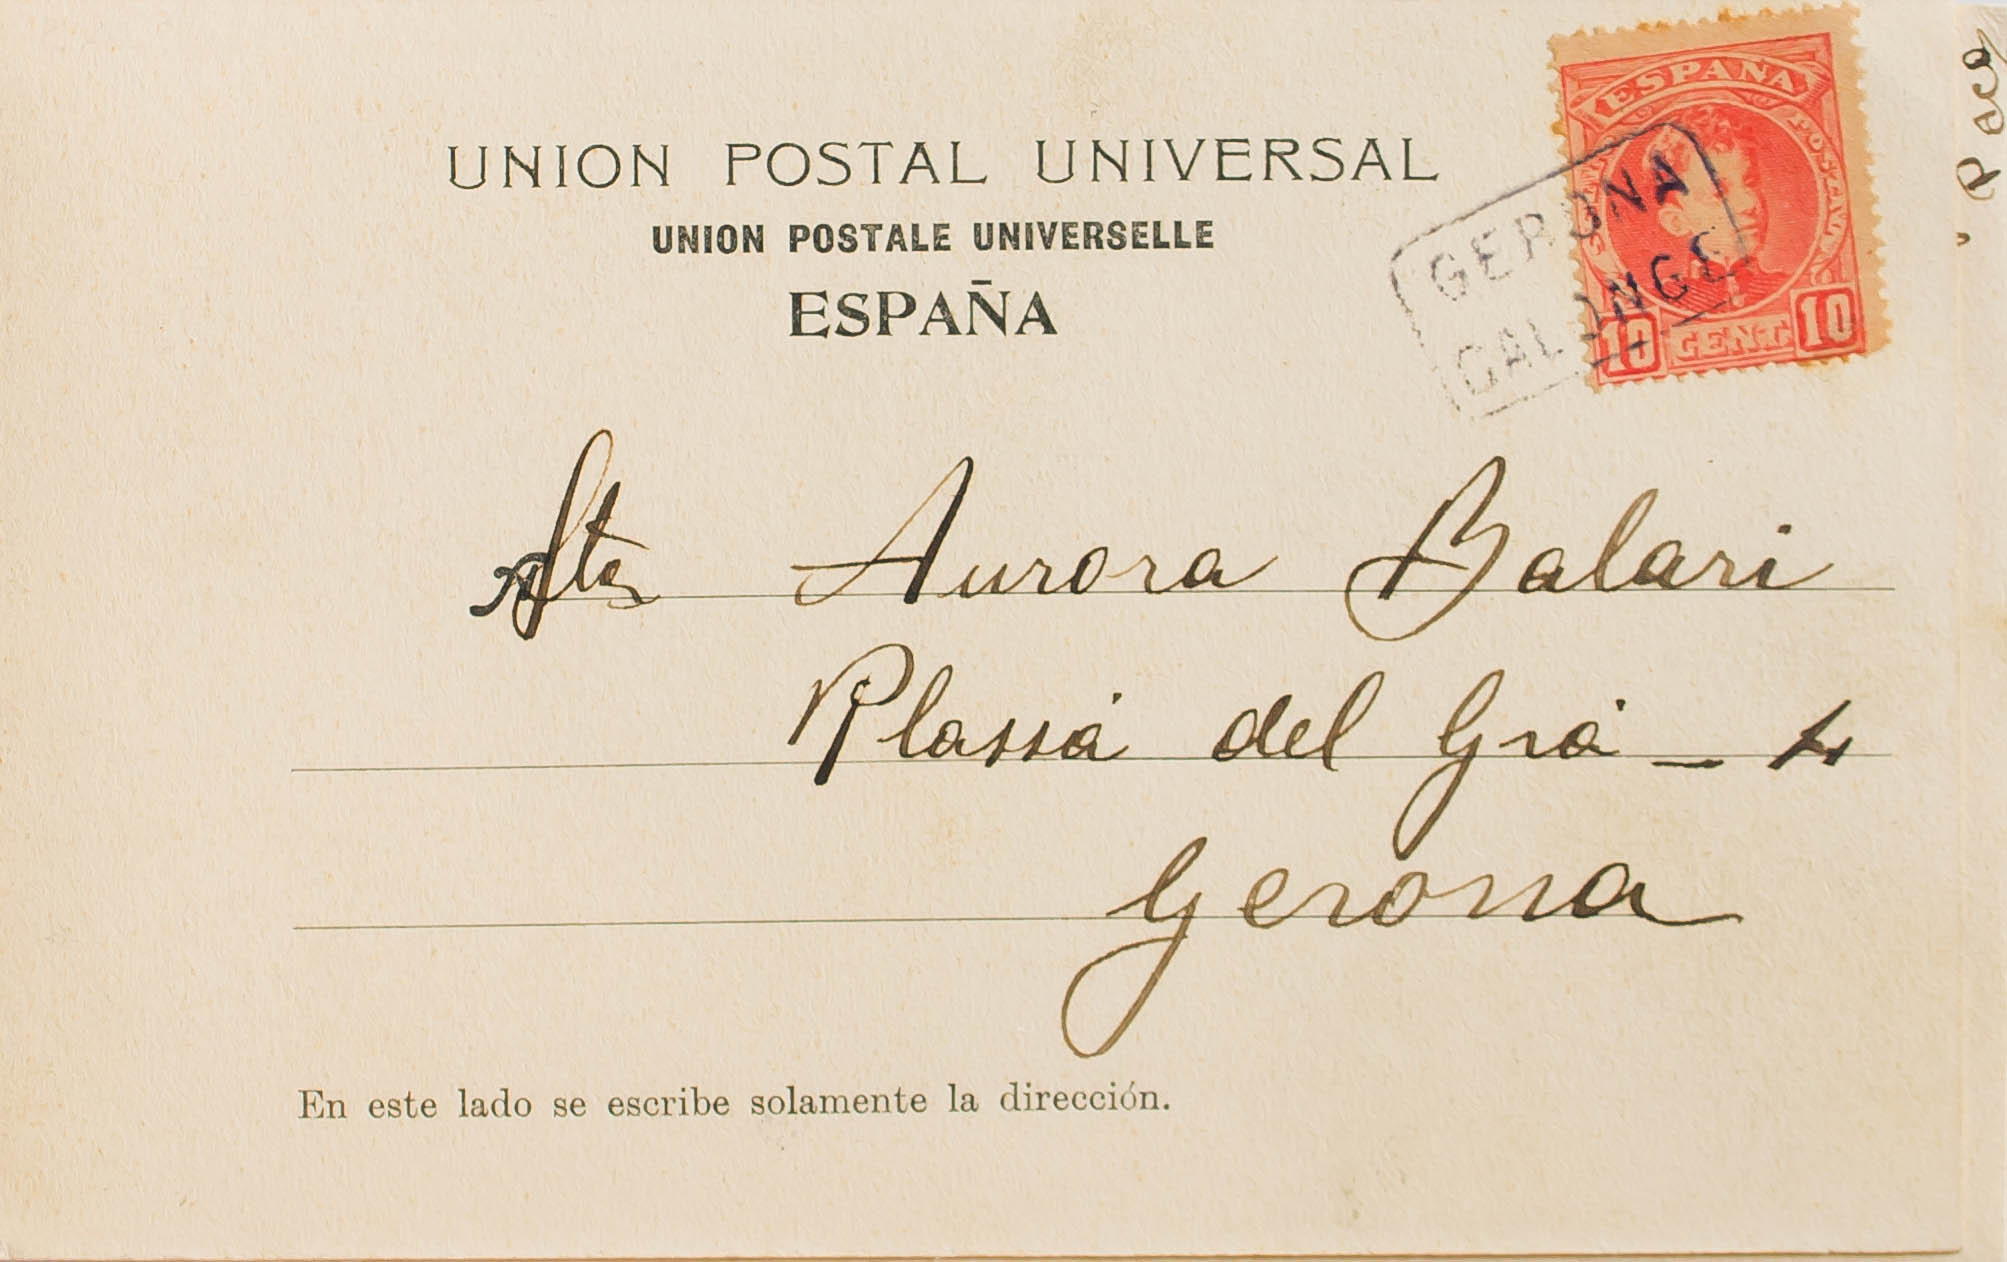 UNION POSTAL UNIVERSAL
UNION POSTALE UNIVERSELLE
ESPAÑA
ESPAÑA
POSTAL
10 CENT. 10
GERONA
CALONGE
Sta Aurora Balari
Plassa del Grá - 4
Gerona
En este lado se escribe solamente la dirección.